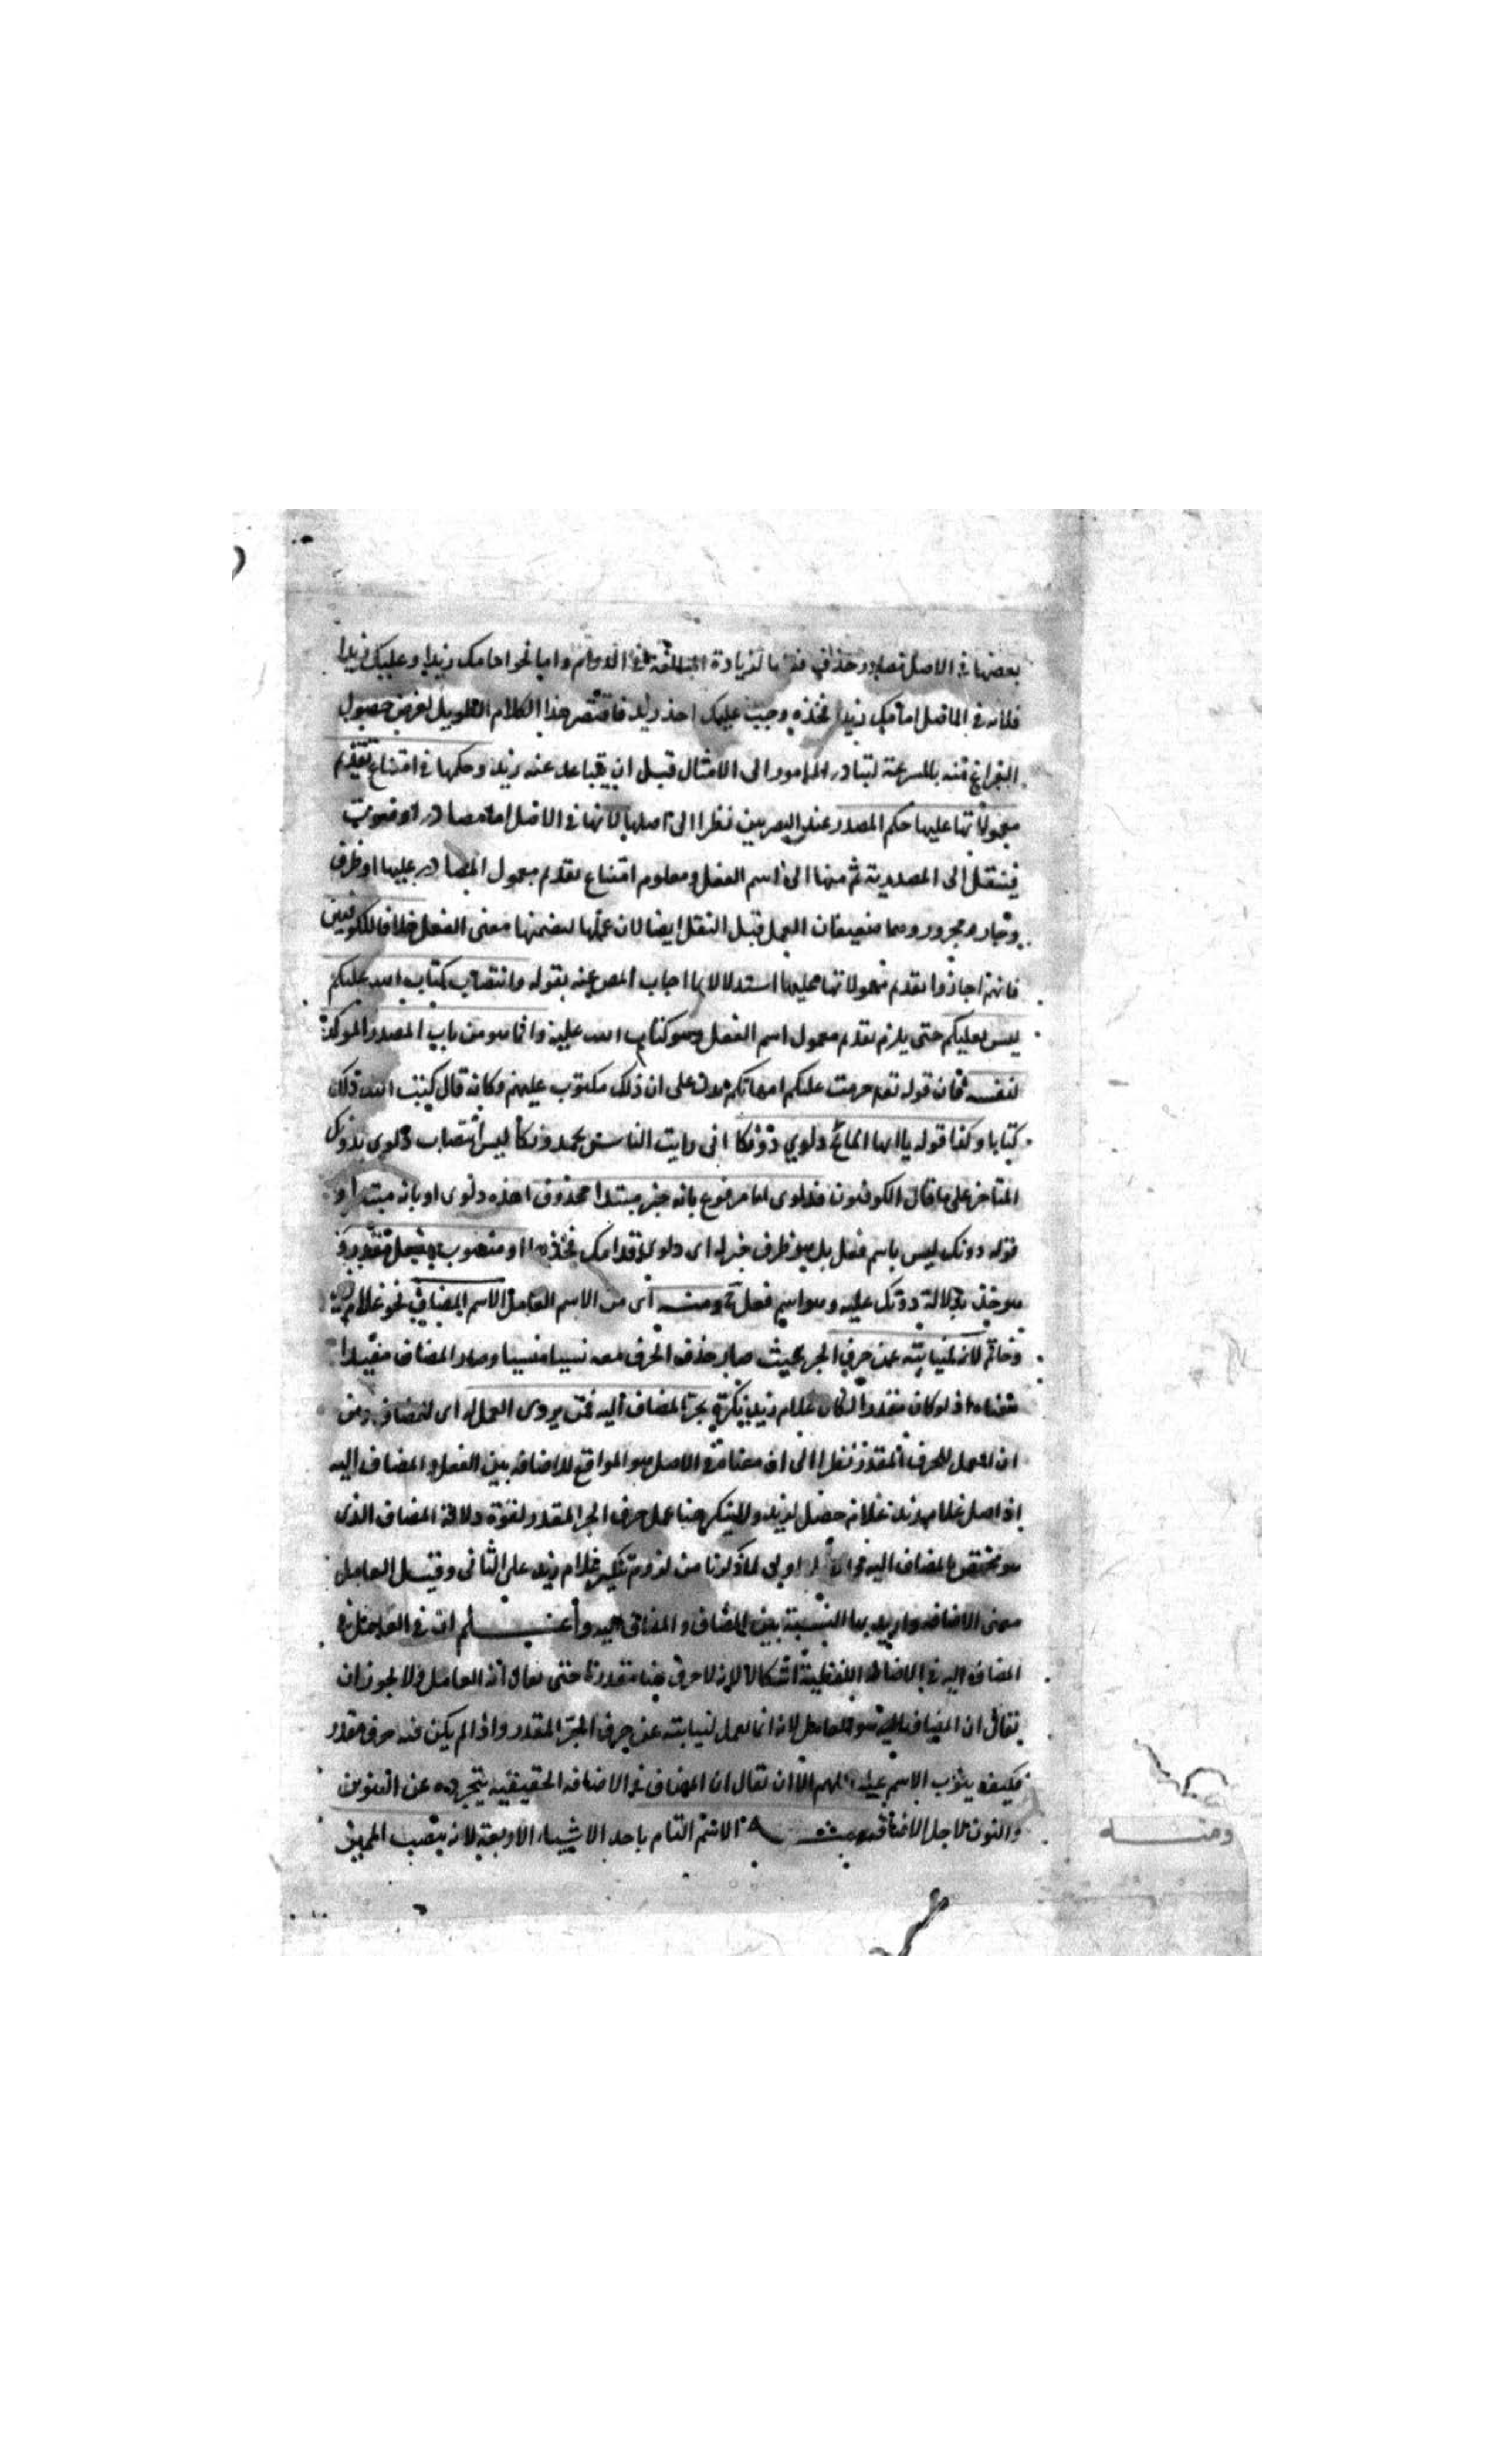 بعضها في الاصل مصادر وحذف منه ما لزيادة المبالغة في الدوام واما نحو امامك زيدا وعليك زيدا
فلانه في الاصل امامك زيدا فخذه وجب عليك اخذ زيد فاقتصر هذا الكلام الطويل لغرض حصول
الفراغ منه بالسرعة ليتبادر المامور الى الامتثال قبل ان يتباعد عنه زيد وحكمها في امتناع تقديم
معمولاتها عليها حكم المصدر عند البصريين نظرا الى اصلها لانها في الاصل اما مصادر او صوت
فينتقل الى المصدرية ثم منها الى اسم الفعل ومعلوم امتناع تقدم معمول المصادر عليها او ظرف
وجار ومجرور وهما ضعيفان العمل قبل النقل ايضا لان عملها لتضمنها معنى الفعل خلافا للكوفيين
فانهم اجازوا تقدم معمولاتها عليها استدلالا بما اجاب المص عنه بقوله وانتصاب كتاب الله عليكم
ليس بعليكم حتى يلزم تقدم معمول اسم الفعل وهو كتاب الله عليه وانما هو من باب المصدر الموكد
لنفسه فان قوله تعه حرمت عليكم امهاتكم يدل على ان ذلك مكتوب عليهم وكانه قال كتب الله ذلك
كتابا وكذا قوله يا ايها المائح دلوي دونكا اني رايت الناس يحمدونكا ليس انتصاب دلوي بدونك
المتاخر على ما قال الكوفيون فدلوي اما مرفوع بانه خبر مبتدا محذوف اي هذه دلوي او بانه مبتدا و
قوله دونك ليس باسم فعل بل هو ظرف خبره اي دلوي قدامك فخذه او منصوب بفعل مقدر
هو خذ بدلالة دونك عليه وهو اسم فعل ومنه اي من الاسم العامل الاسم المضاف نحو غلام زيد
وخاتم لانه لنيابته عن حرف الجر بحيث صار حذف الحرف معه نسيا منسيا وصار المضاف مفيدا
معناه اذ لو كان مقدرا لكان غلام زيد نكرة يجر المضاف اليه فمن يروى العمل له اي للمضاف ومن
ان العمل للحرف المقدر نظرا الى ان معناه في الاصل هو الموقع للاضافة بين الفعل والمضاف اليه
اذ اصل غلام زيد غلام حصل لزيد ولا ينكر هنا عمل حرف الجر المقدر لقوة دلالة المضاف الذي
هو مختص بالمضاف اليه اولى لما ذكرنا من لزوم تنكير غلام زيد على الثاني وقيل العامل
معنى الاضافة واريد بها النسبة بين المضاف والمضاف اليه واعلم ان في العامل في
المضاف اليه في الاضافة اللفظية اشكالا لانه لا حرف هنا مقدرة حتى يقال انه العامل ولا يجوز ان
يقال ان المضاف اليه هو العامل لانه انما يعمل لنيابته عن حرف الجر المقدر واذا لم يكن فيه حرف مقدر
فكيف ينوب الاسم عنه اللهم الا ان يقال ان المضاف في الاضافة الحقيقية يتجرده عن التنوين
والنون لاجل الاضافة ومنه الاسم التام باحد الاشياء الاربعة لانه ينصب المميز
ومنه